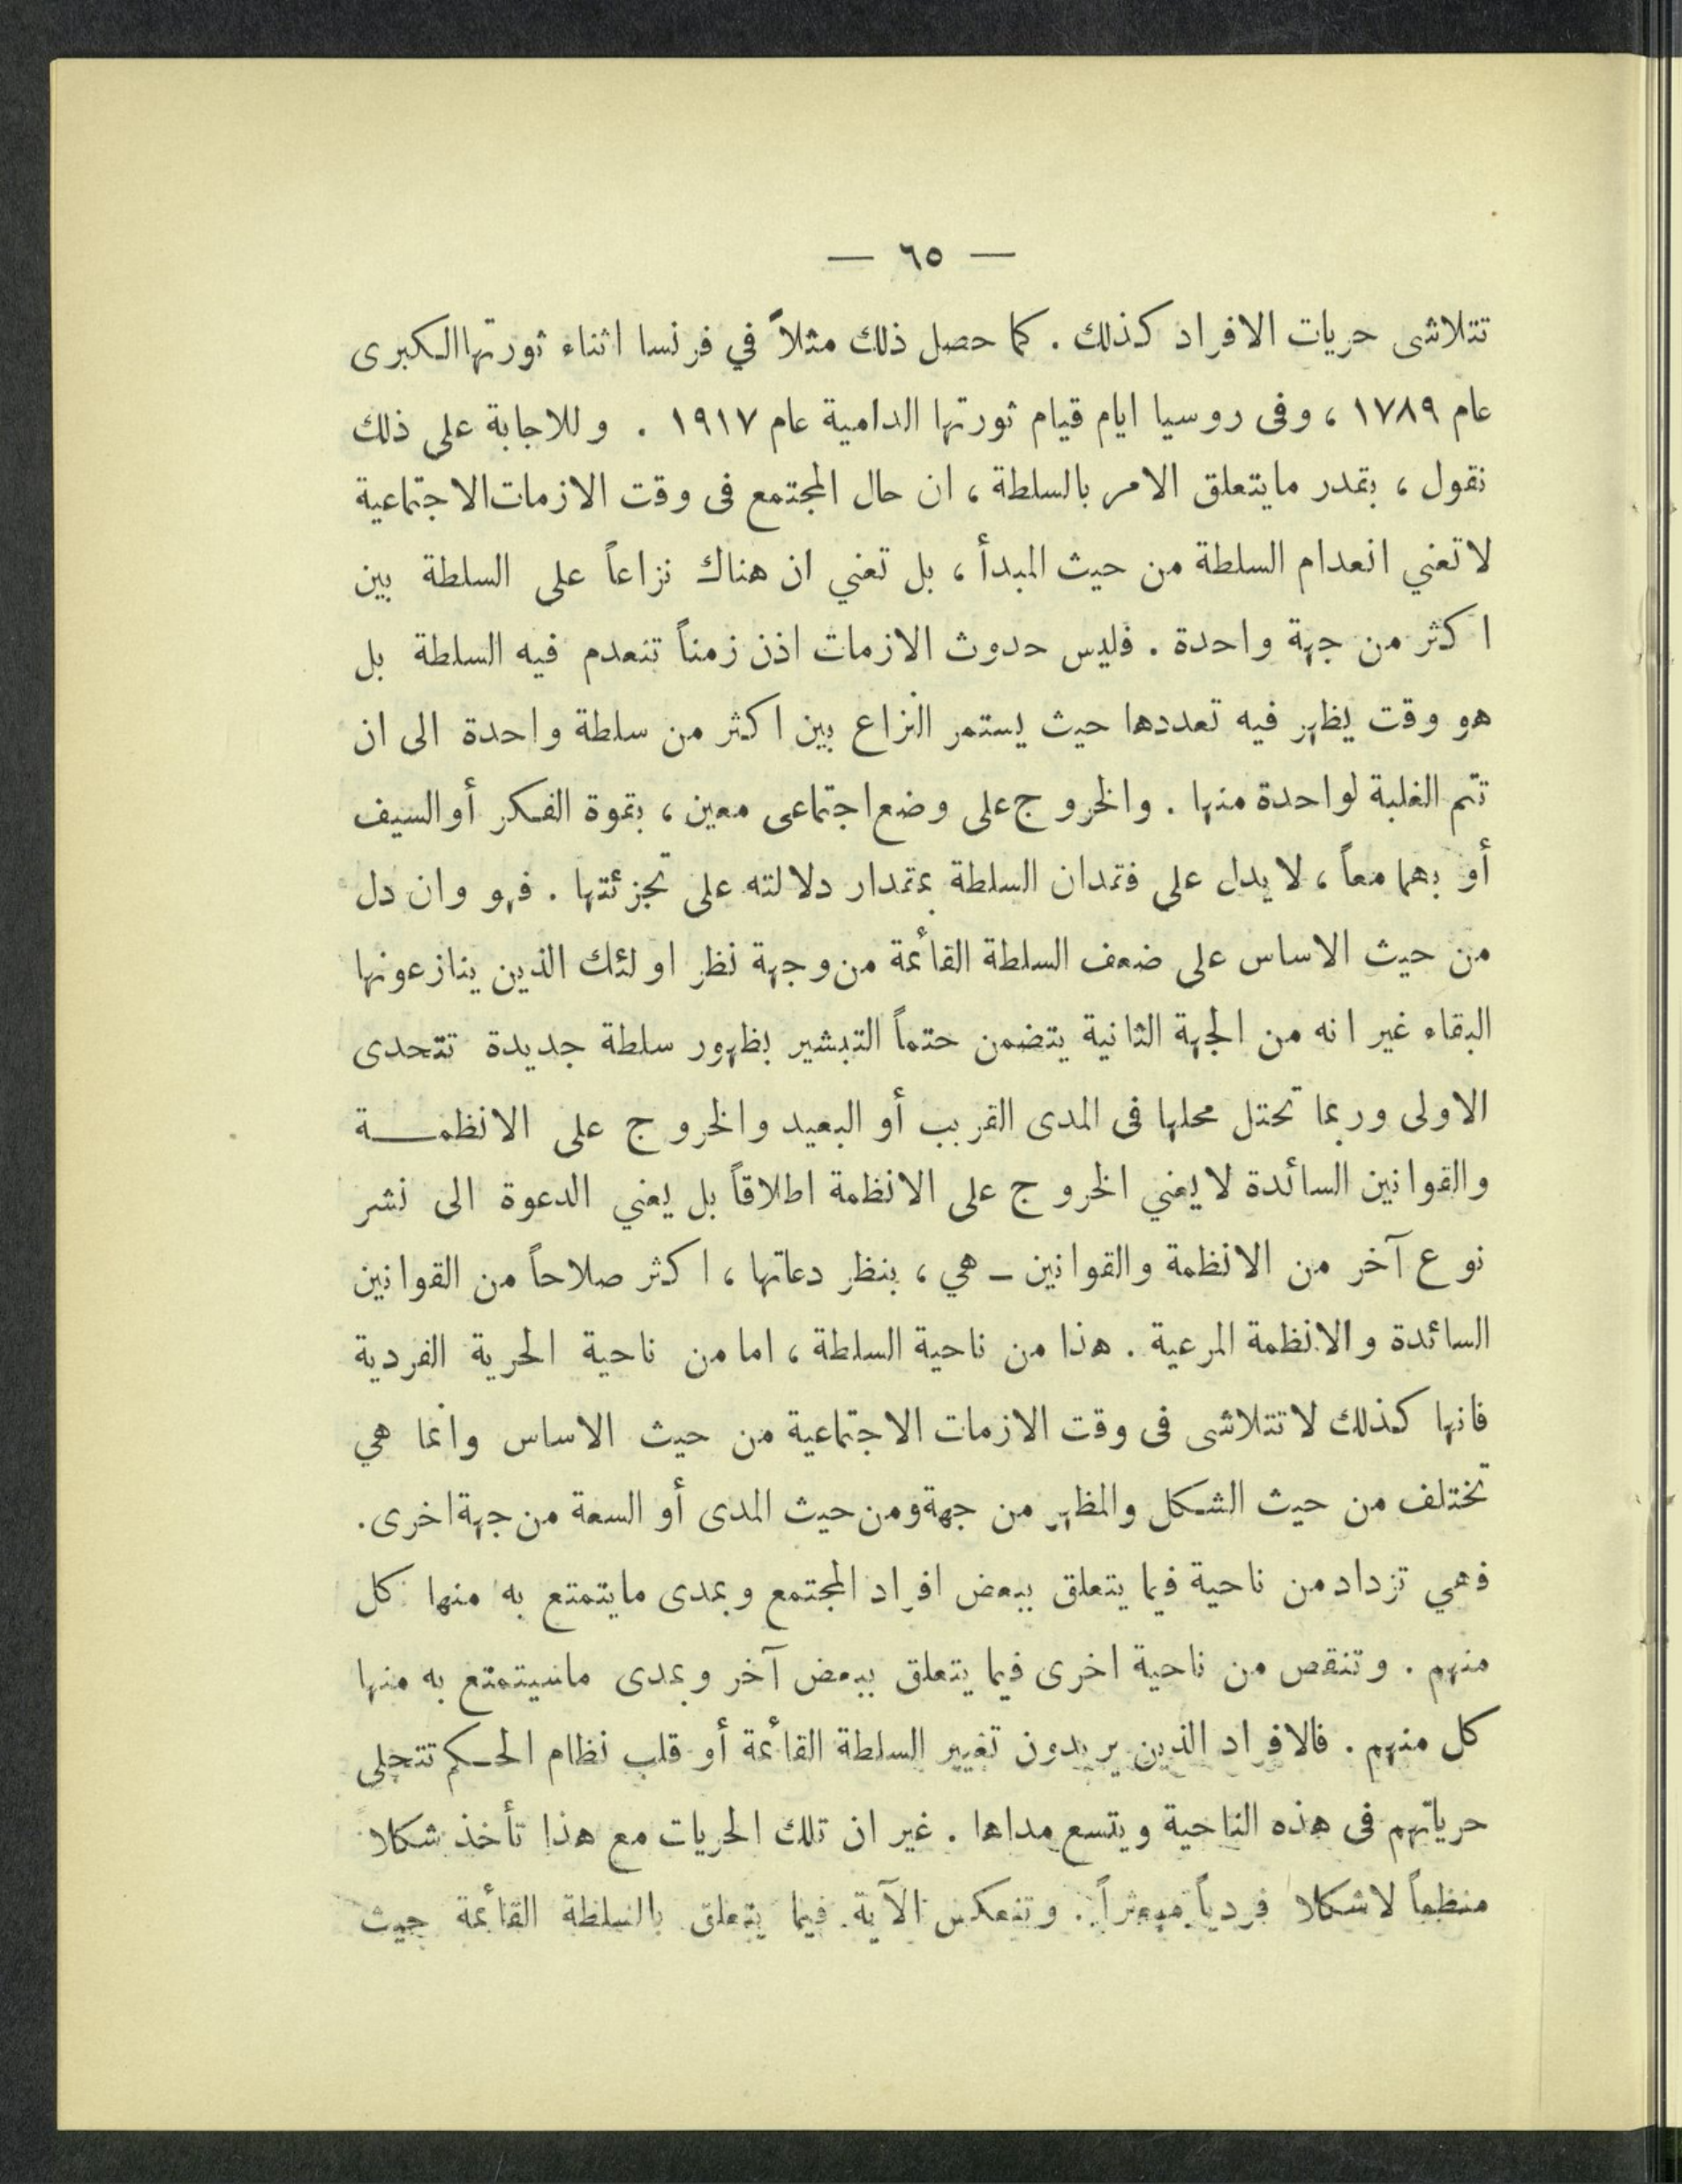 — ٦٥ —
تتلاشى حريات الافراد كذلك . كما حصل ذلك مثلاً في فرنسا اثناء ثورتها الكبرى
عام ١٧٨٩ ، وفى روسيا ايام قيام ثورتها الدامية عام ١٩١٧ . وللاجابة على ذلك
نقول ، بقدر مايتعلق الامر بالسلطة ، ان حال المجتمع فى وقت الازمات الاجتماعية
لا تعني انعدام السلطة من حيث المبدأ ، بل تعني ان هناك نزاعاً على السلطة بين
اكثر من جهة واحدة . فليس حدوث الازمات اذن زمناً تنعدم فيه السلطة بل
هو وقت يظهر فيه تعددها حيث يستمر النزاع بين اكثر من سلطة واحدة الى ان
تتم الغلبة لواحدة منها . والخروج على وضع اجتماعى معين ، بقوة الفكر أو السيف
أو بهما معاً ، لا يدل على فقدان السلطة بمقدار دلالته على تجزئتها . فهو وان دل
من حيث الاساس على ضعف السلطة القائمة من وجهة نظر اولئك الذين ينازعونها
البقاء غير انه من الجهة الثانية يتضمن حتماً التبشير بظهور سلطة جديدة تتحدى
الاولى وربما تحتل محلها فى المدى القريب أو البعيد والخروج على الانظمـــة
والقوانين السائدة لا يعني الخروج على الانظمة اطلاقاً بل يعني الدعوة الى نشر
نوع آخر من الانظمة والقوانين ـ هي ، بنظر دعاتها ، اكثر صلاحاً من القوانين
السائدة والانظمة المرعية . هذا من ناحية السلطة ، اما من ناحية الحرية الفردية
فانها كذلك لا تتلاشى فى وقت الازمات الاجتماعية من حيث الاساس وانما هي
تختلف من حيث الشكل والمظهر من جهة ومن حيث المدى أو السعة من جهة اخرى .
فهي تزداد من ناحية فيما يتعلق ببعض افراد المجتمع وبمدى مايتمتع به منها كل
منهم . وتنقص من ناحية اخرى فيما يتعلق ببعض آخر وبمدى ماسيتمتع به منها
كل منهم . فالافراد الذين يريدون تغيير السلطة القائمة أو قلب نظام الحكم تتجلى
حرياتهم فى هذه الناحية ويتسع مداها . غير ان تلك الحريات مع هذا تأخذ شكلا
منظماً لا شكلا فردياً مبعثراً . وتنعكس الآية فيما يتعلق بالسلطة القائمة حيث